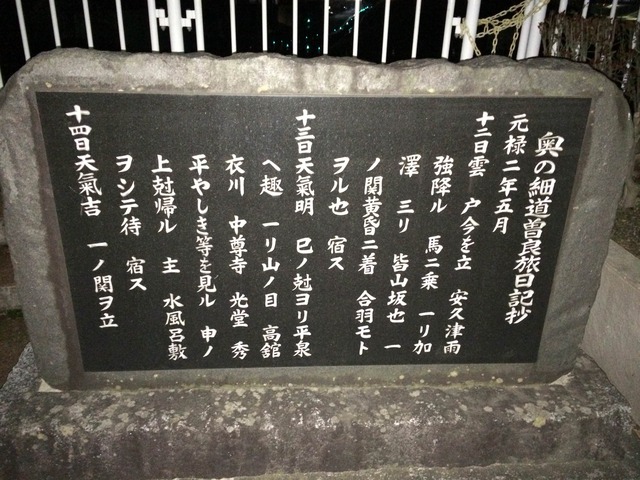 奥の細道曽良旅日記抄
元禄二年五月
十二日雲 戸今を立 安久津雨
強降ル 馬ニ乗 一リ加
澤 三リ 皆山坂也 一
ノ関黄昏ニ着 合羽モト
ヲル也 宿ス
十三日天氣明 巳ノ尅ヨリ平泉
ヘ趣 一リ山ノ目 高舘
衣川 中尊寺 光堂 秀
平やしき等を見ル 申ノ
上尅帰ル 主 水風呂敷
ヲシテ待 宿ス
十四日天氣吉 一ノ関ヲ立